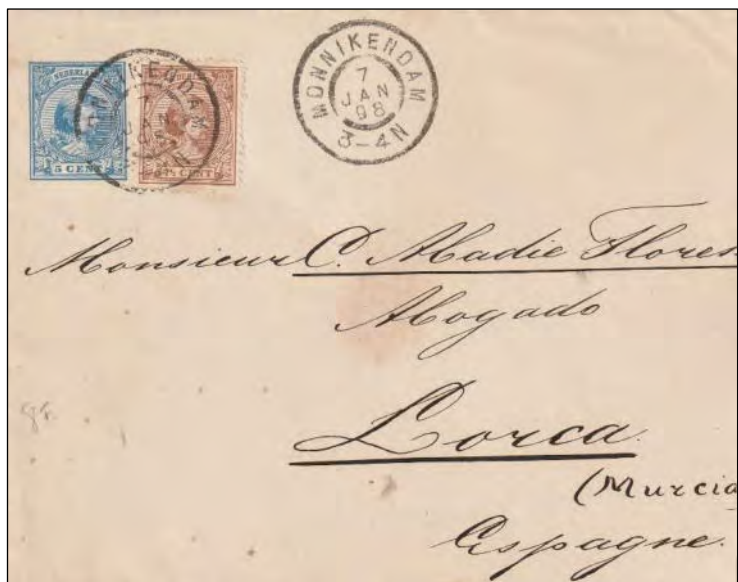 NEDERLAND
5 CENT
7½ CENT
MONNIKENDAM
7
JAN
98
3-4N
MONNIKENDAM
7
JAN
98
3-4N
Monsieur C. Abadie Flores
Abogado
Lorca.
(Murcia
Espagne.